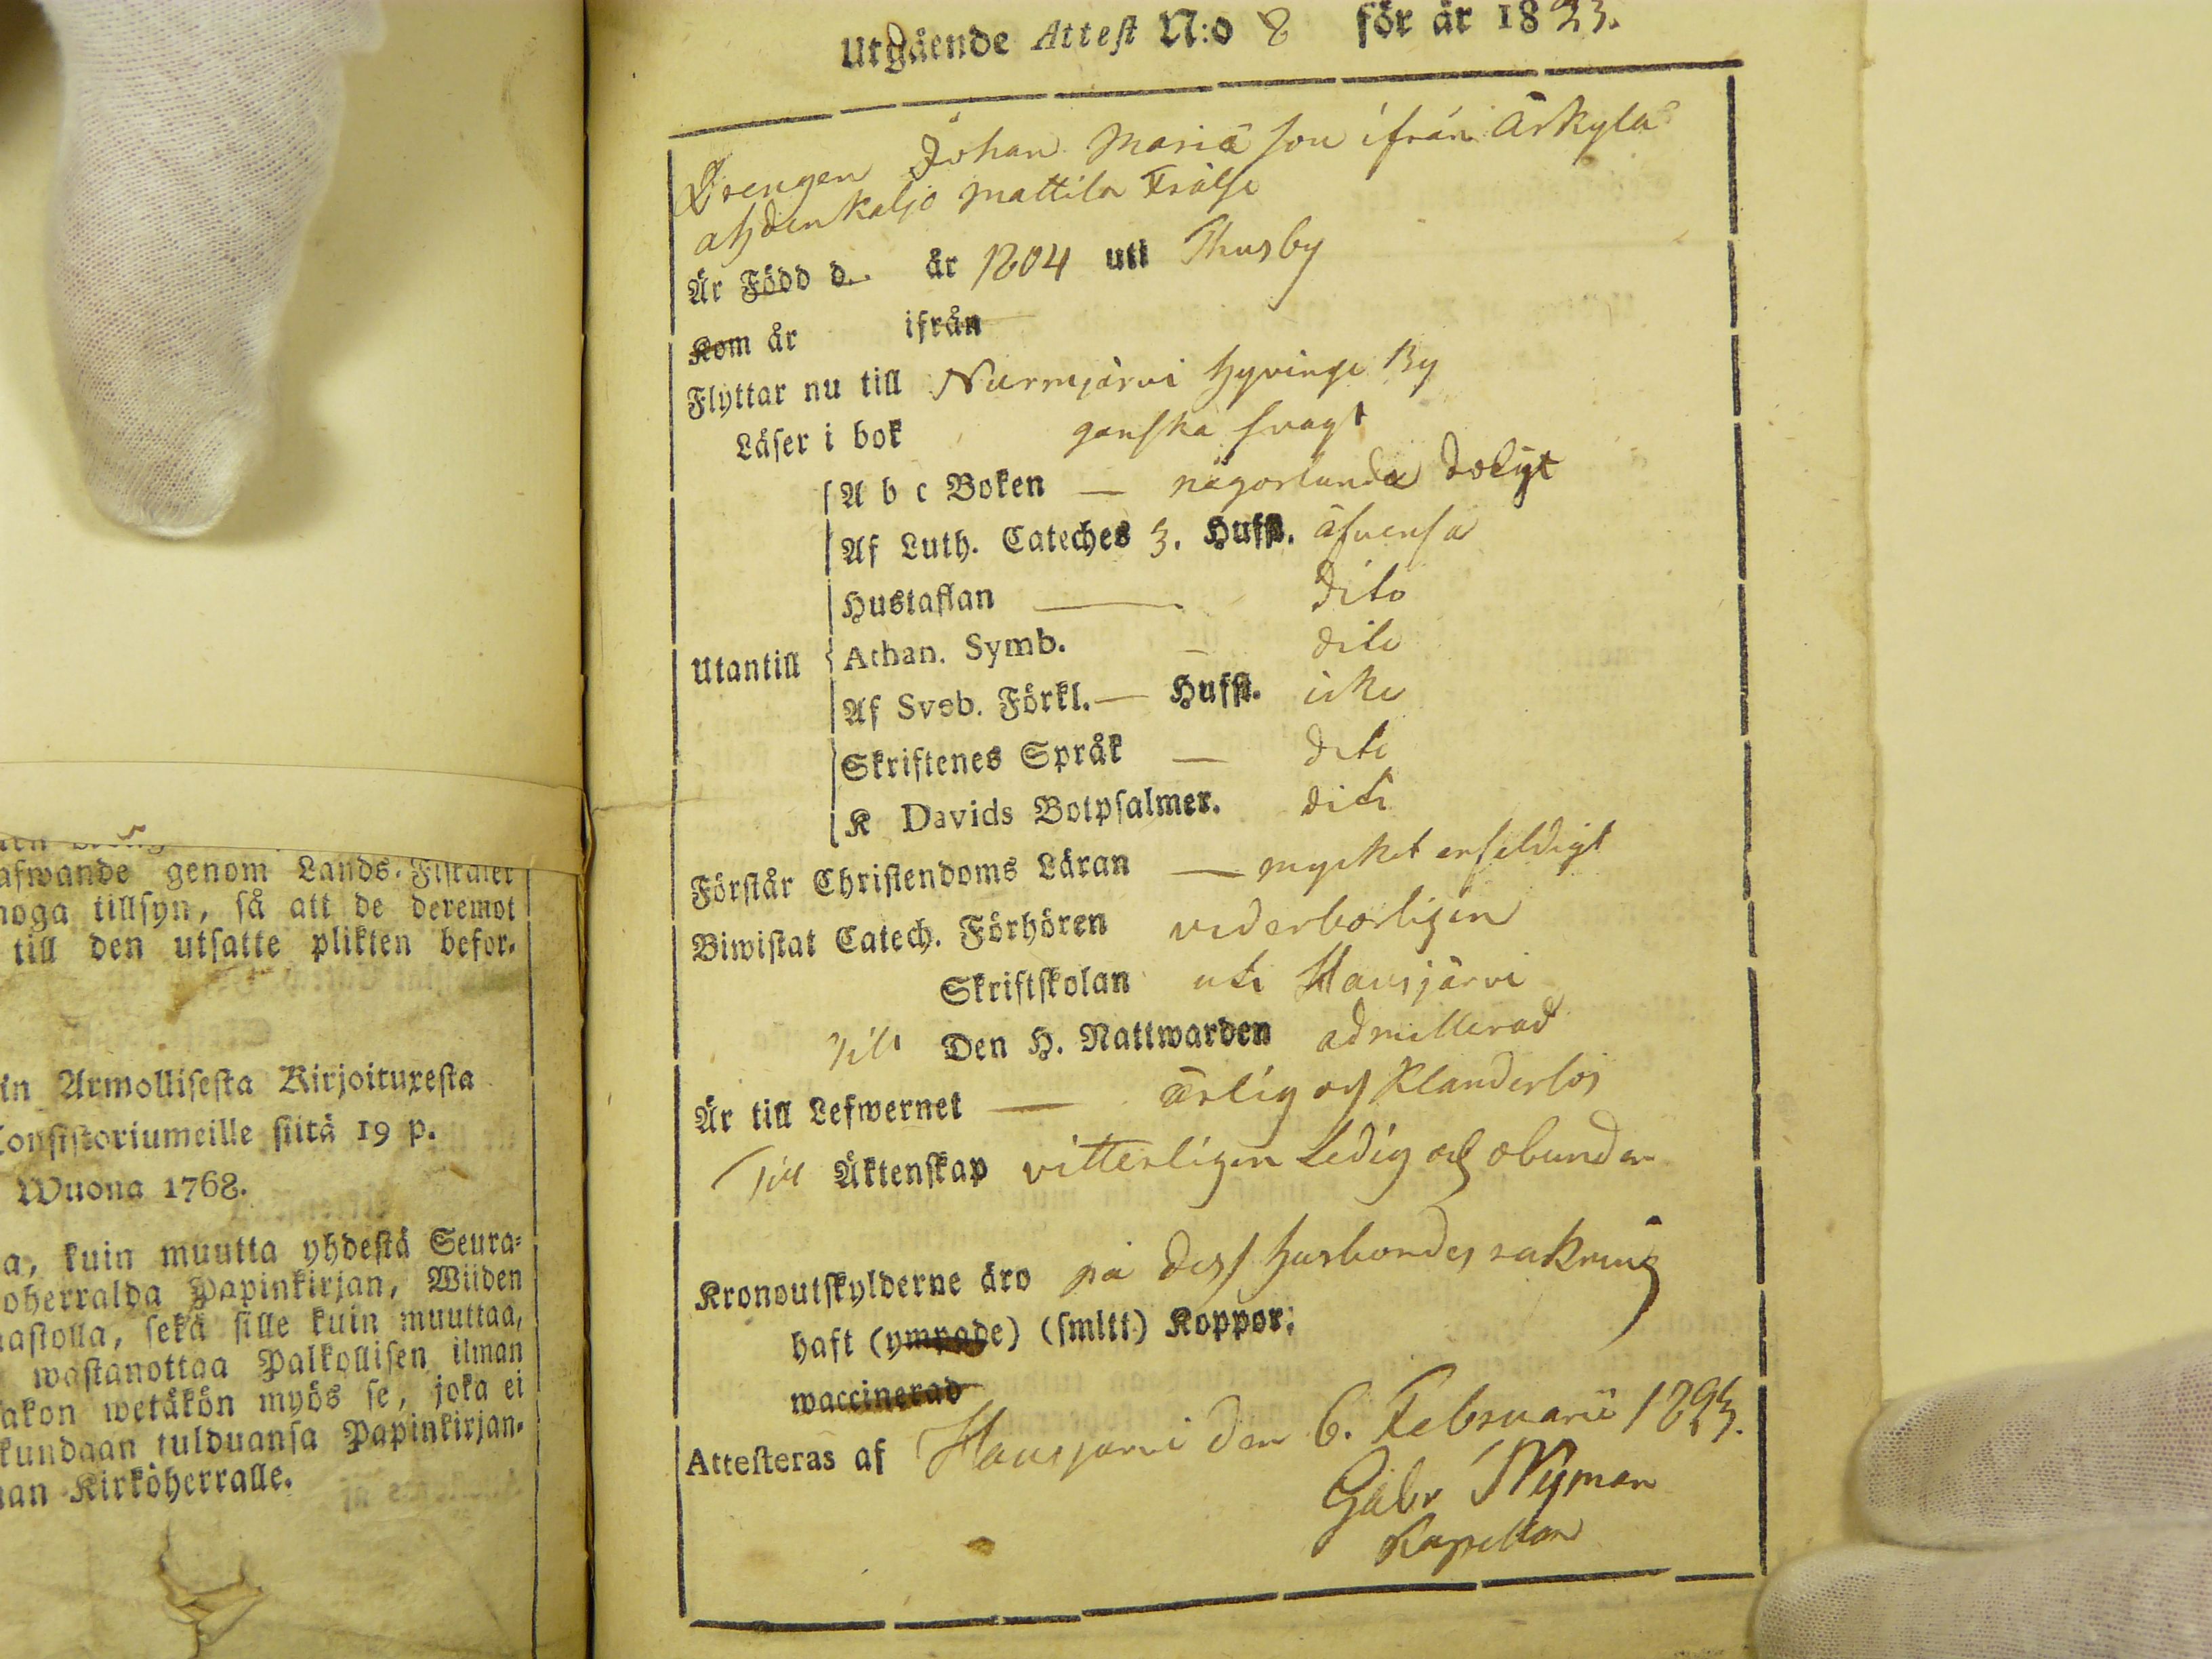 afwande genom Lands-Fiskaler
noga tillsyn, så att de deremot
till den utsatte plikten befor-
in Armollisesta Kirjoituxesta
Consistoriumeille siitä 19 p.
Wuona 1768.
a, kuin muutta yhdestä Seura-
oherralda Papinkirjan, Wiiden
astolla, sekä sille kuin muuttaa,
wastanottaa Palkollisen ilman
akon wetäkön myös se, joka ei
kundaan tulduansa Papinkirjan-
an Kirkoherralle.
Utgående Attest N:o 8 för år 1823.
Drengen Johan Mariæ son ifrån Arkyla
ahdenkaljo Mattila Frälse
Är Född d. år 1804 uti Thusby
Kom år ifrån
Flyttar nu till Nurmjärvi Hyvinge By
Läser i bok ganska svagt
A b c Boken — någorlunda doligt
Af Luth. Cateches 3. Hufst. äfvenså
Hustaflan — dito
Utantill Athan. Symb. — dito
Af Sveb. Förkl. — Hufst. icke
Skriftenes Språk — dito
K Davids Botpsalmer. dito
Förstår Christendoms Läran — mycket enfaldigt
Biwistat Catech. Förhören vederbörligen
Skriftskolan uti Hausjärvi
Till Den H. Nattwarden admitterad
Är till Lefwernet — ärlig och Klanderlös
Till Äktenskap vitterligen Ledig och obunden
Kronoutskylderne äro på dess husbondes räkning
haft (ympade) (smitt) Koppor;
waccinerad
Attesteras af Hausjärvi den 6. Februarii 1823.
Gabr Nyman
Kapellan